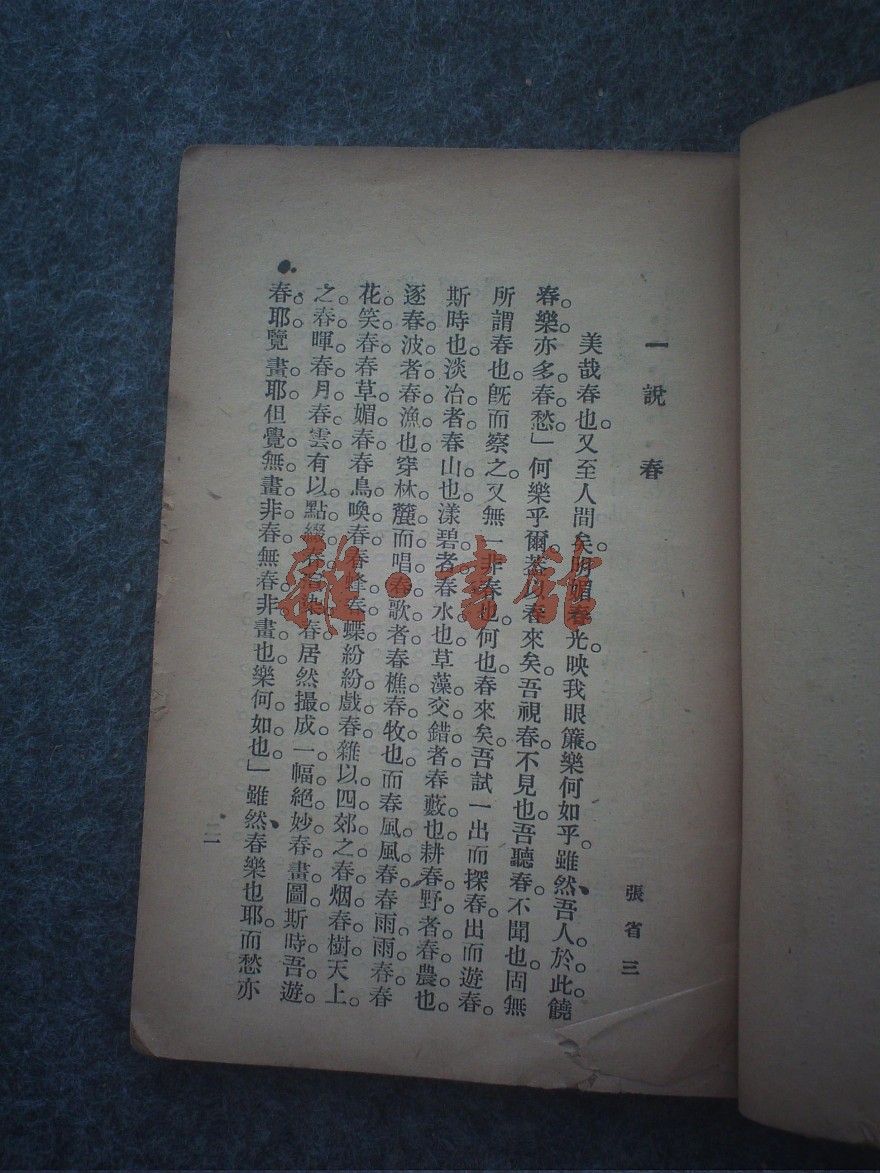 一 說 春
張省三
美哉春也。又至人間矣。明媚春光映我眼簾。樂何如乎。雖然、吾人於此。饒
春。樂亦多春。愁」何樂乎爾。蓋以春來矣。吾視春不見也。吾聽春不聞也。固無
所謂春也。旣而察之。又無一非春也。何也。春來矣。吾試一出而探春。出而遊春。
斯時也。淡冶者春山也。漾碧者春水也。草藻交錯者春藪也。耕春野者春農也。
逐春波者春漁也。穿林麓而唱春歌者春樵春牧也。而春風風春。春雨雨春。春
花笑春。春草媚春。春鳥喚春。春蜂春蝶紛紛戲春。雜以四郊之春烟春樹。天上
之春暉春月春雲。有以點綴春。渲染春。居然撮成一幅絕妙春畫圖。斯時吾遊
春耶。覽畫耶。但覺無畫非春。無春非畫也。樂何如也」雖然、春樂也耶。而愁亦
二
雜·書館